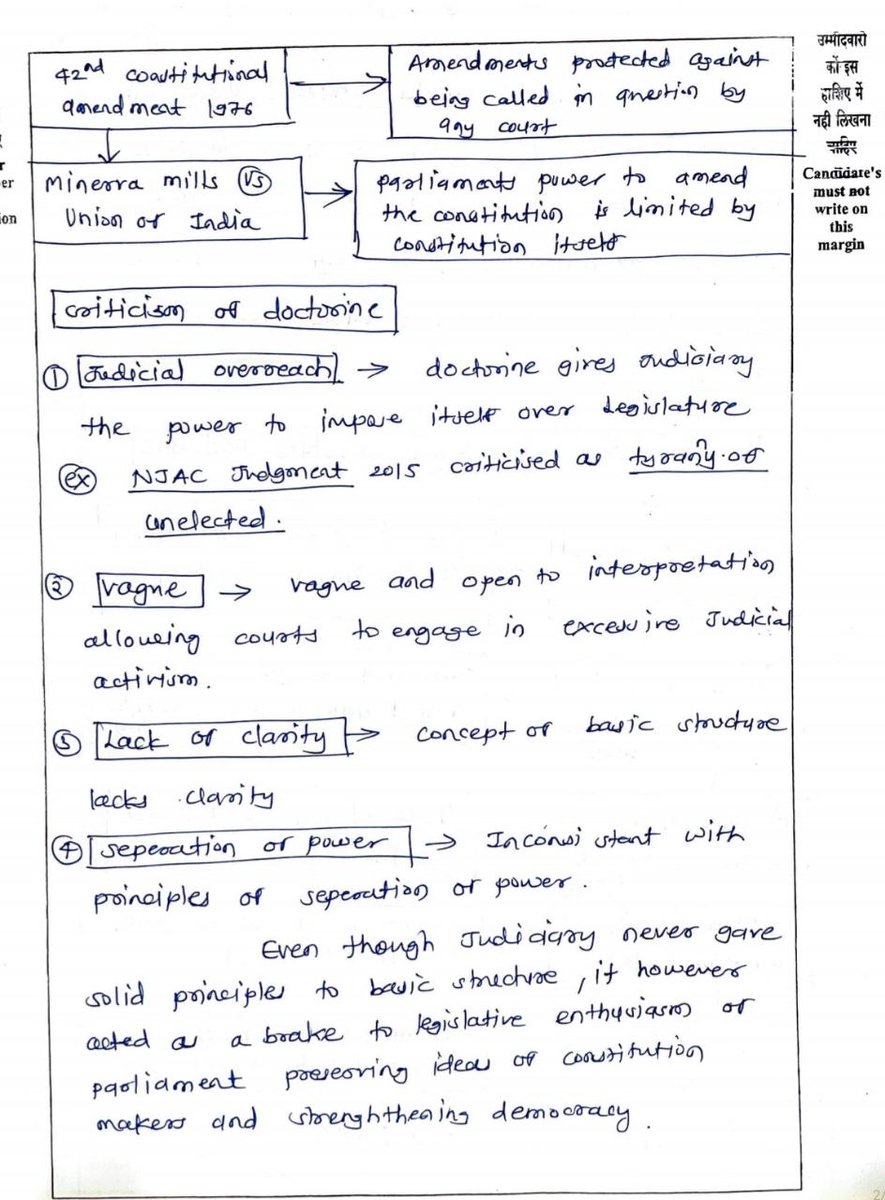 42nd constitutional
amendment 1976
Amendments protected against
being called in question by
any court
Minerva mills VS
Union of India
parliaments power to amend
the constitution is limited by
constitution itself
criticism of doctrine
① Judicial overreach → doctrine gives Judiciary
the power to impose itself over Legislature
ex NJAC Judgment 2015 criticised as tyranny of
unelected.
② vague → vague and open to interpretation
allowing courts to engage in excessive Judicial
activism.
③ Lack of clarity → concept of basic structure
lacks clarity
④ seperation of power → Inconsistent with
principles of seperation of power.
Even though Judiciary never gave
solid principles to basic structure, it however
acted as a brake to legislative enthusiasm of
parliament preserving ideas of constitution
makers and strenghthening democracy.
उम्मीदवारों
को इस
हाशिए में
नही लिखना
चाहिए
Candidate's
must not
write on
this
margin